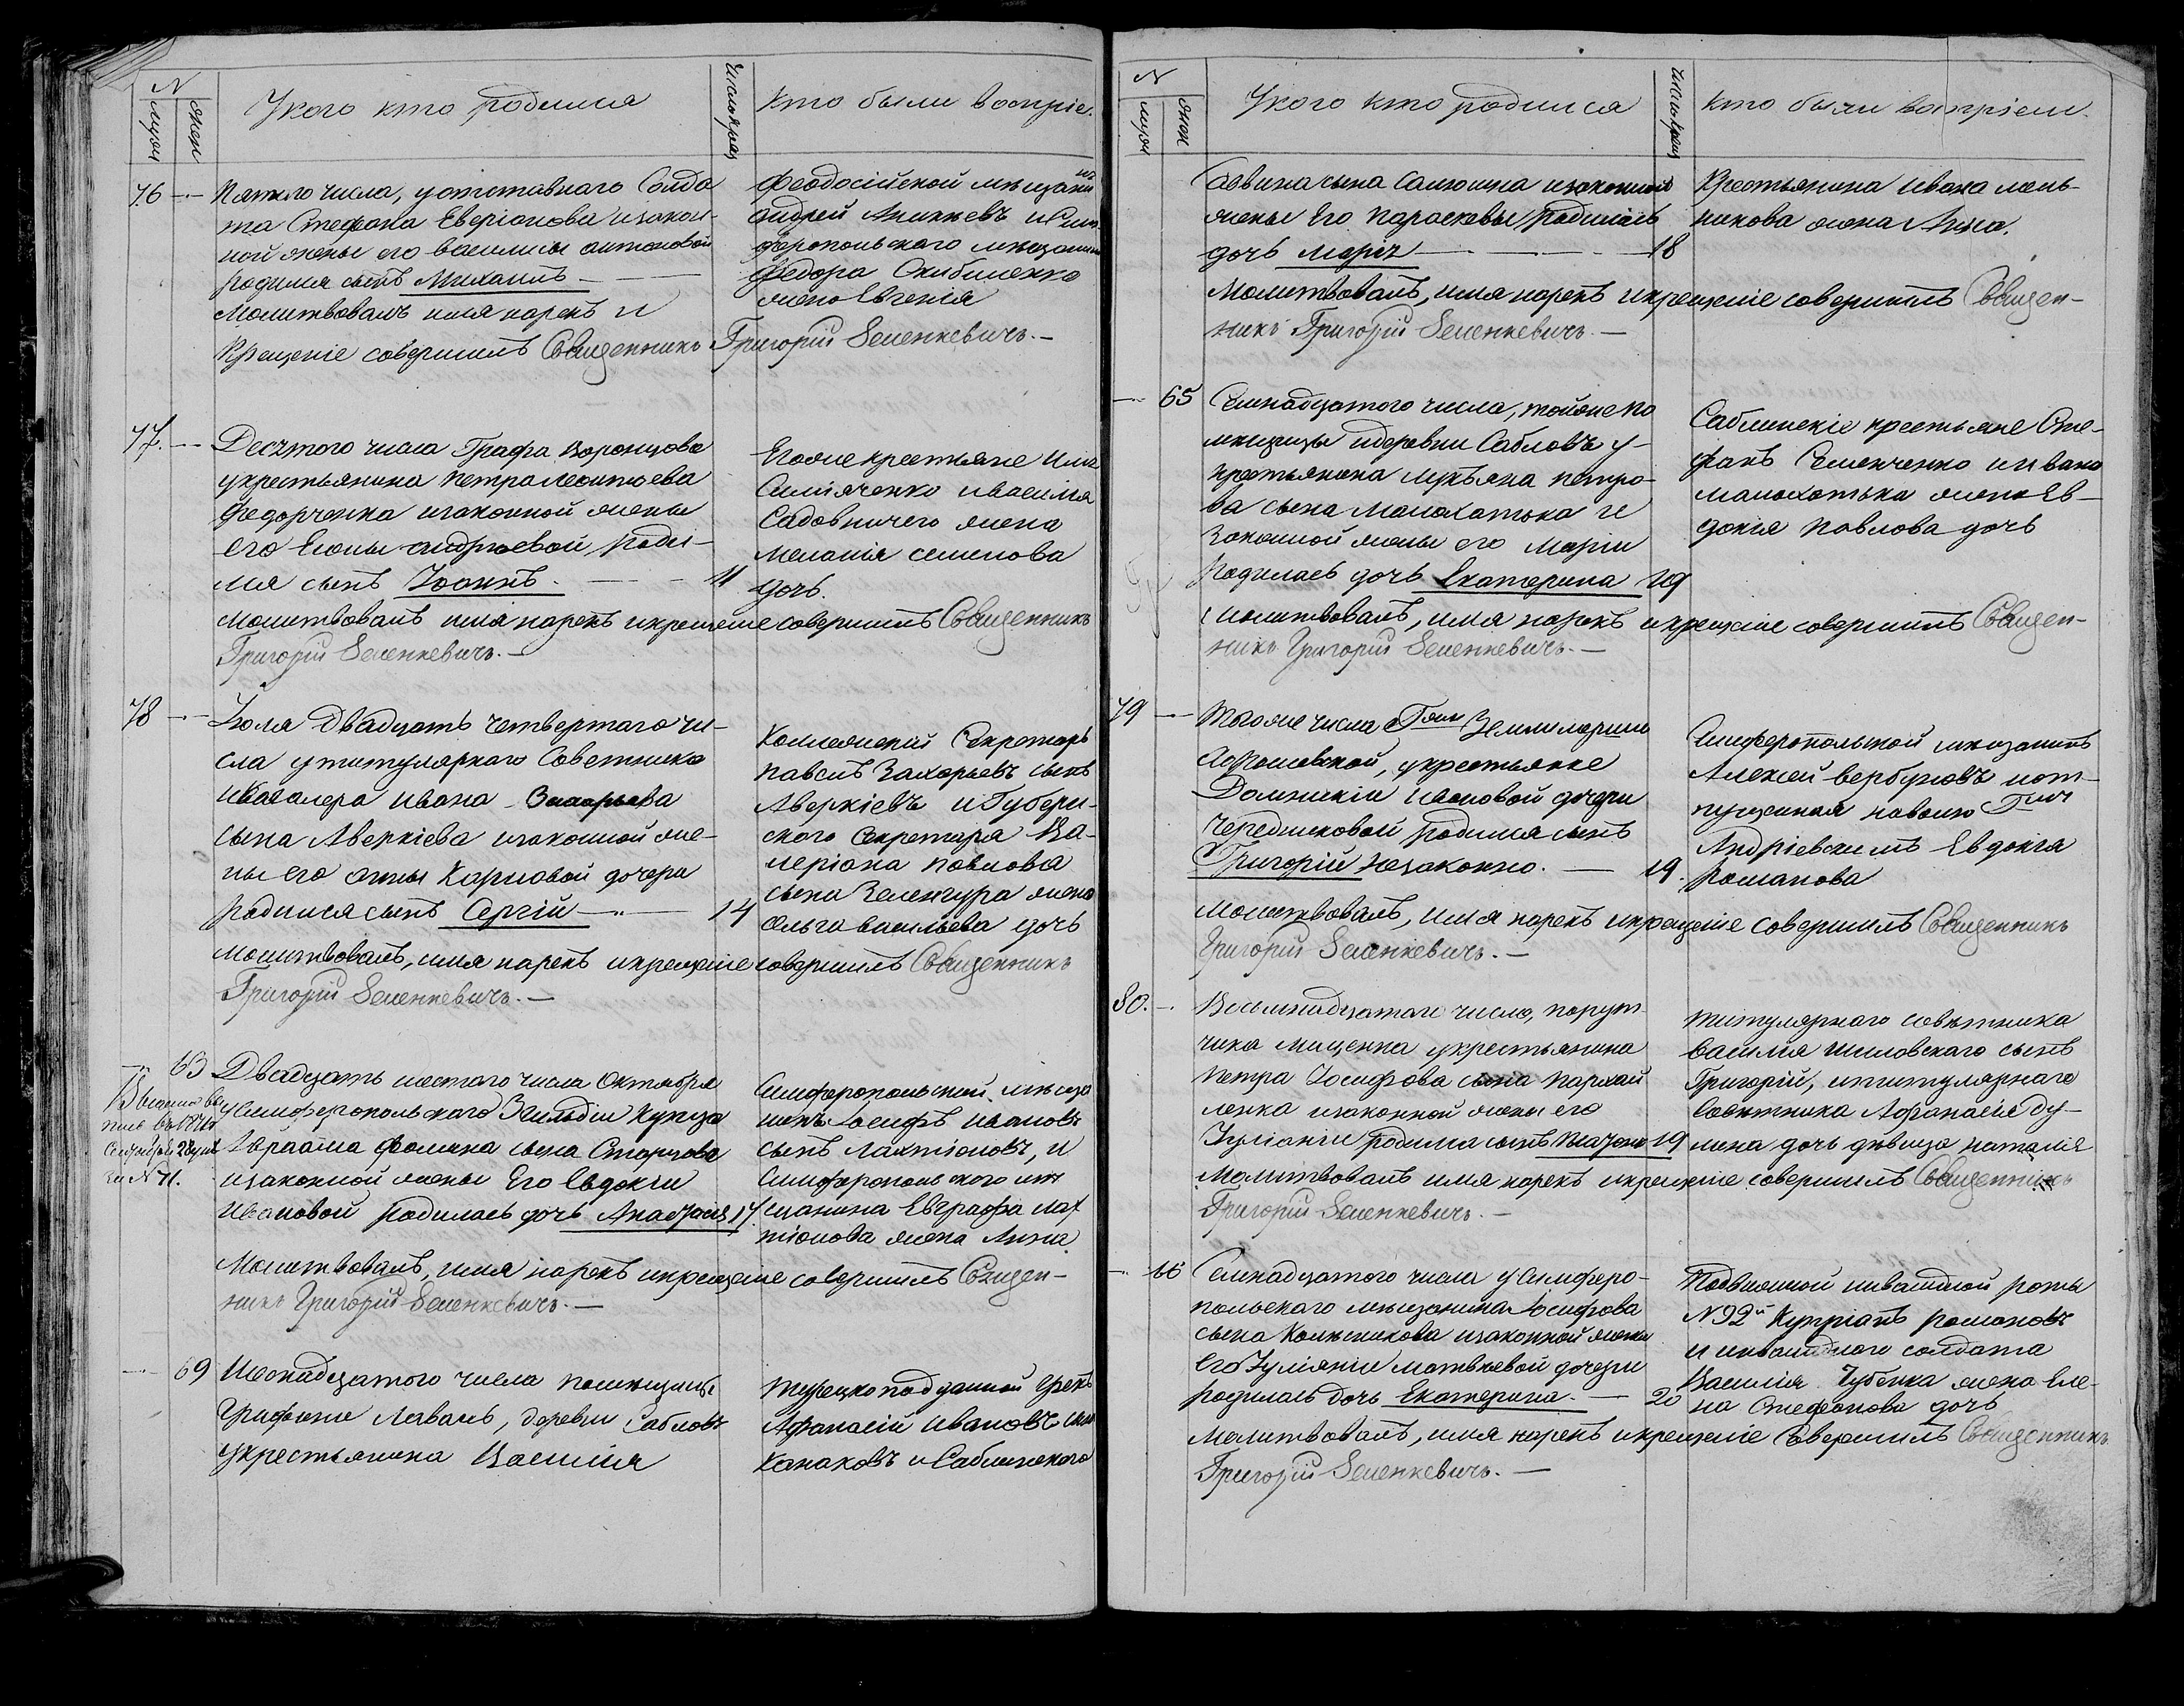 N
муж
жен
Укого кто родился
Кто были воспріе.
76 Пятого числа, уотставнаго Солда
та Стефана Еверіанова изакон-
ной жены его василисы антоновой
родился сынъ Михаилъ
молитвовалъ имя нарекъ и
Крещеніе совершилъ Священникъ Григорій Зеленкевичъ.
Феодосійской мѣщани
нъ
андрей Аникѣевъ и Сим
феропольского мѣщанина
федора
жена Евгенія
77. Десятого числа Графа Воронцова
укрестьянина петра леонтьева
Федорченка изаконной жены
его Елены андреевой роди-
лся сынъ Іоаннъ. 11
молитвовалъ имя нарекъ икрещеніе совершилъ Священникъ
Григорій Зеленкевичъ.
Егоже крестьяне Илья
ивасилія
Садовничего жена
меланія семенова
дочь.
78 Іюля Двадцать четвертаго чи-
сла утитулярнаго Советника
икавалера ивана Захарьева
сына Аверкіева изаконной же-
ны его анны Карповой дочери
родился сынъ Сергій 14
молитвовалъ, имя нарекъ икрещеніе совершилъ Священникъ
Григорій Зеленкевичъ.
Коллежскій Секретарь
павелъ Захарьевъ сынъ
Аверкіевъ и Губерн-
ского Секретаря Ва-
леріана павлова
сына жена
Ольга васильева дочь
63 Двадцать шестаго числа Октября
усимферопольскаго Зей гильдіи купца
Авраама фомина сына Старцова
изаконной жены Его Евдокіи
Ивановой родилась дочь Анастасія 17.
Молитвовалъ, имя нарекъ икрещеніе совершилъ Священ-
никъ Григорій Зеленкевичъ.
N 71.
Симферопольской мѣща
нинъ Іосифъ ивановъ
сынъ лактіоновъ, и
Симферопольского мѣ
щанина Евграфа лак
тіонова жена Анна
69 Шеснадцатого числа помѣщицы
Графини Лаваль, деревни Сабловъ
укрестьянина Василія
Турецко подданной грекъ
Афанасій Ивановъ
Канаковъ и Саблинского
N
муж
жен
Укого кто родился
кто были воспріем.
Савина сына изаконной
жены Его параскевы родилась
дочь марія 18
Молитвовалъ, имя нарекъ икрещеніе совершилъ Священ-
никъ Григорій Зеленкевичъ.
Крестьянина Ивана мель-
никова жена Анна.
65 Семнадцатого числа, тойже по
мѣщицы идеревни Сабловъ у-
крестьянина лукьяна петро-
ва сына малохатька и
Законной жены его Маріи
родилась дочь Екатерина 19
молитвовалъ, имя нарекъ икрещеніе совершилъ Священ-
никъ Григорій Зеленкевичъ.
Саблинскіе крестьяне Сте-
фанъ Семенченко иивана
малохатька жена Ев-
докія павлова дочь
79 Тогоже числа
укрестьянке
Домникіи ивановой дочери
Чередниковой родился сынъ
Григорій незаконно. 19.
Молитвовалъ, имя нарекъ икрещеніе совершилъ Священникъ
Григорій Зеленкевичъ.
Симферопольской мѣщанинъ
Алексей вербуновъ иот-
пущенная наволю
Андріевскимъ Евдокія
романова
80. Восемнадцатаго числа, порут-
чика укрестьянина
Петра Іосифова сына
изаконной жены его
Іуліаніи родился сынъ 19
Молитвовалъ имя нарекъ икрещеніе совершилъ Священникъ
Григорій Зеленкевичъ.
титулярнаго совѣтника
василія шиловскаго сынъ
Григорій, ититулярнаго
Совѣтника Афанасія ду-
дочь дѣвица наталія
66 Семнадцатого числа усимферо-
польскаго мѣщанина Іосифова
сына Колесникова изаконной жены
его Іуліаніи матвѣевой дочери
родилась дочь Екатерина. 20
Молитвовалъ, имя нарекъ икрещеніе совершилъ Священникъ
Григорій Зеленкевичъ.
Подвижной инвалидной роты
N 92й Купріанъ романовъ
и инвалидного солдата
Василія жена Еле-
на Стефанова дочь